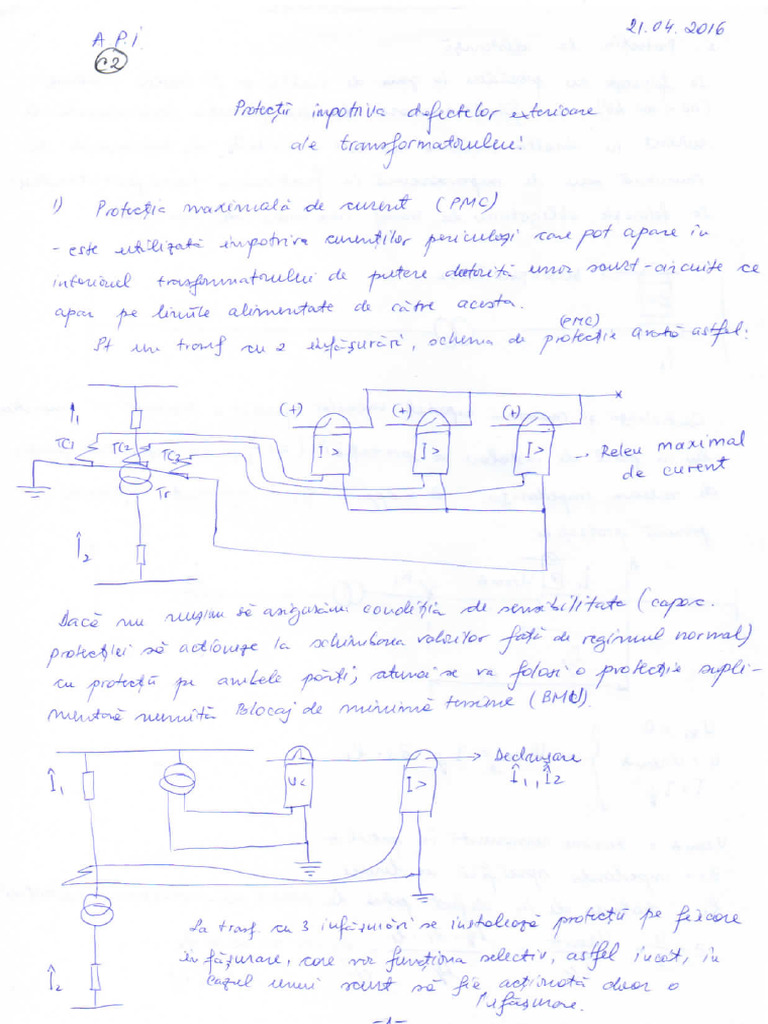 21.04.2016
A.P.I.
C2
Protecții impotriva defectelor exterioare
ale transformatorului!
1) Protecția maximală de curent (PMC)
- este utilizată impotriva curenților periculoși care pot apare în
interiorul trasformatorului de putere datorită unor scurt-circuite ce
apar pe liniile alimentate de către acesta.
(PMC)
Pt un transf cu 2 înfășurări, schema de protecție arată astfel:
(+) (+) (+)
I1
TC1 TC2 TC3
I> I> I>
- Releu maximal
de curent
Tr
I2
Dacă nu reușim să asigurăm condiția de sensibilitate (capac.
protecției să acționeze la schimbarea valorilor față de regimul normal)
cu protecții pe ambele părți, atunci se va folosi o protecție supli-
mentară numită Blocaj de minimă tensiune (BMU).
I1
U<
I>
Declanșare
I1, I2
La trasf. cu 3 infășurări se instalează protecții pe fiecare
infășurare, care vor funcționa selectiv, astfel incât, in
cazul unui scurt să fie acționată doar o
infășurare.
I2
-1-